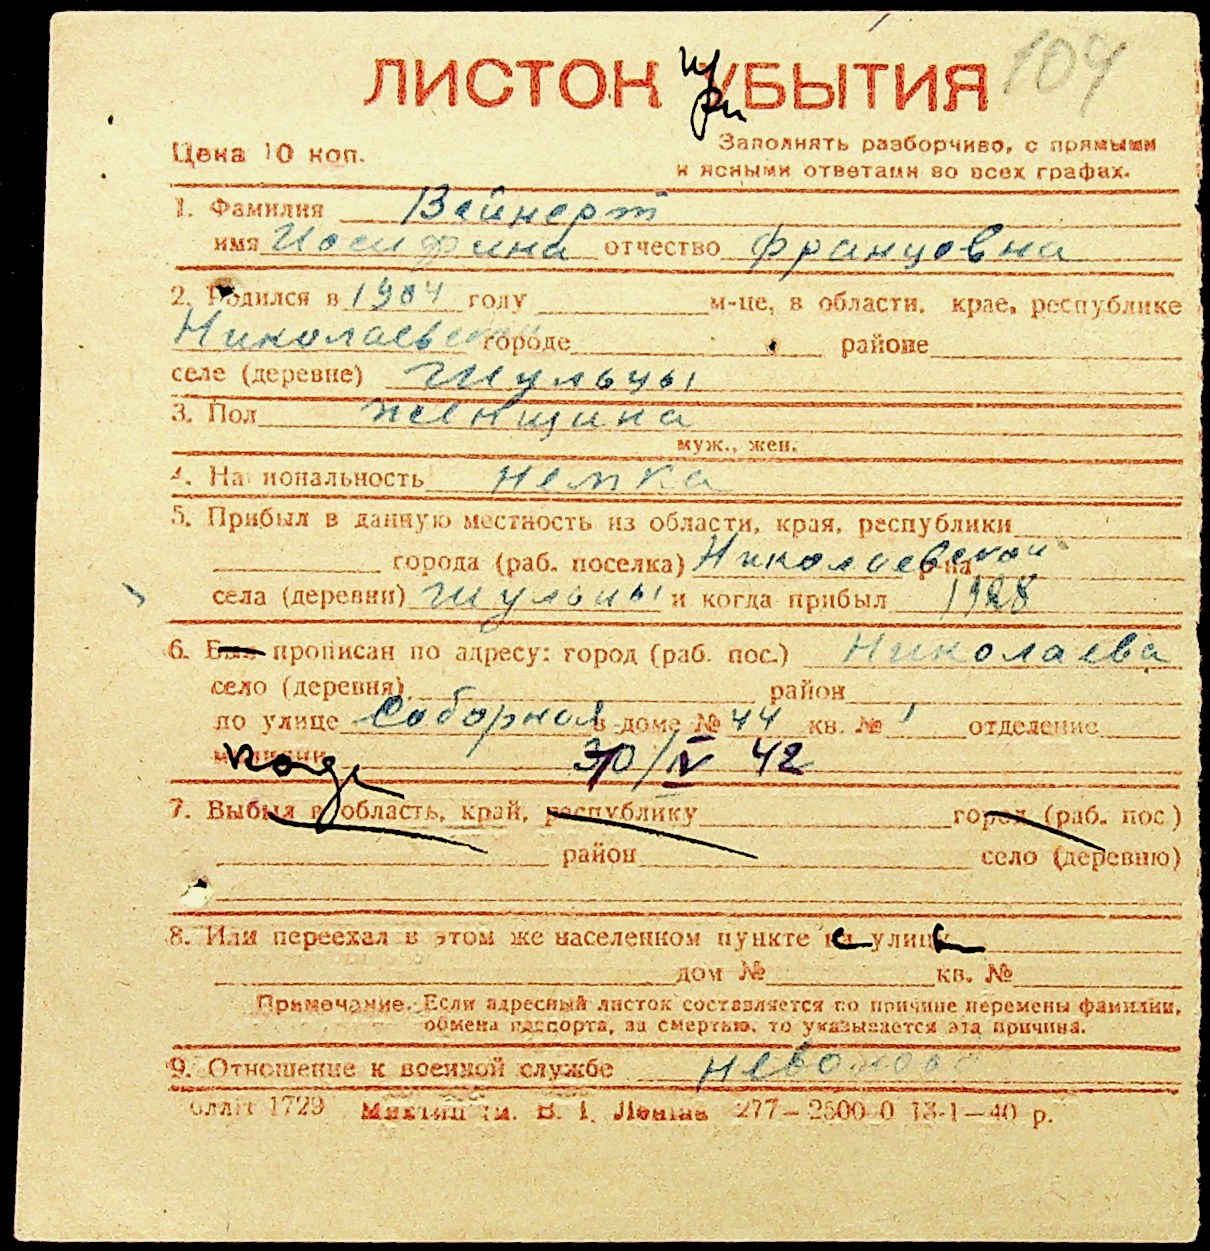 ЛИСТОК УБЫТИЯ 104
при
Цена 10 коп. Заполнять разборчиво, с прямыми
и ясными ответами во всех графах.
1. Фамилия Вейнерт
имя Иосифина отчество Францовна
2. Родился в 1904 году м-це, в области, крае, республике
Николаевской городе районе
селе (деревне) Шульцы
3. Пол женщина
муж., жен.
4. Национальность немка
5. Прибыл в данную местность из области, края, республики
города (раб. поселка) Николаевской р-на
села (деревни) Шульцы и когда прибыл 1928
6. Был прописан по адресу: город (раб. пос.) Николаева
село (деревня) район
по улице Соборная в доме № 44 кв. № 1 отделение
милиции 30/IV 42
когда
7. Выбыл в область, край, республику город (раб. пос.)
район село (деревню)
8. Или переехал в этом же населенном пункте с улицы
дом № кв. №
Примечание. Если адресный листок составляется по причине перемены фамилии,
обмена паспорта, за смертью, то указывается эта причина.
9. Отношение к военной службе
облліт 1729 ім. В. І. Леніна 277— 13-1—40 р.